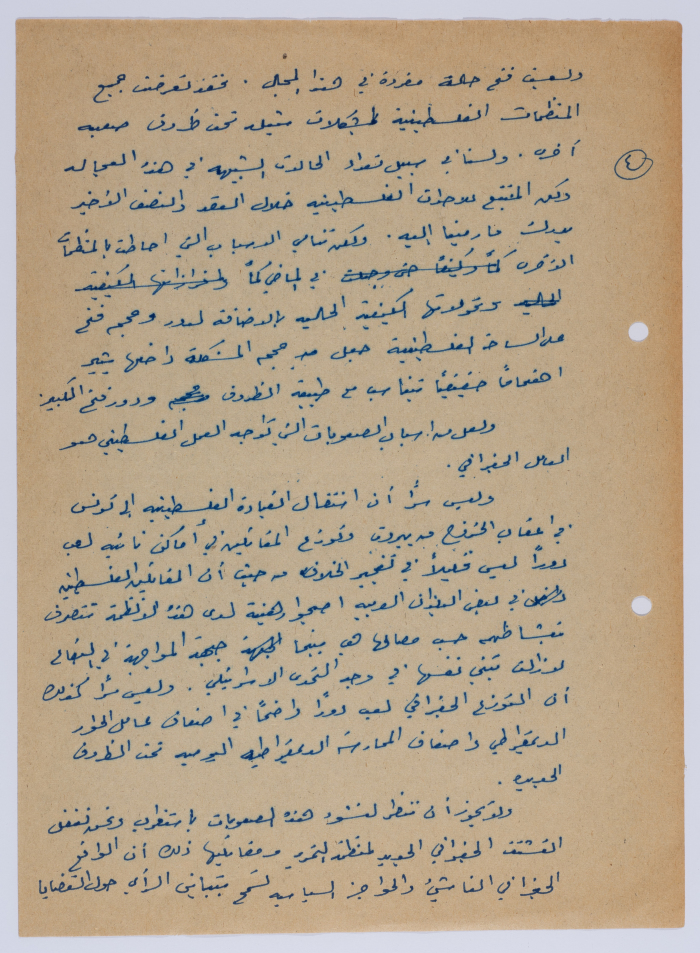 وليست فتح حالة مفردة في هذا المجال. فقد تعرضت جميع
المنظمات الفلسطينية لمشكلات مثيلة تحت ظروف صعبه
أخرى. ولسنا في سبيل تعداد الحالات الشبيهه في هذه العجاله
٤
ولكن المتتبع للاحداث الفلسطينيه خلال العقد والنصف الأخير
يدرك ما رمينا إليه. ولكن تنامي الاسباب التي احاطت بالمنظمات
الأخرى كماً وكيفاً في الماضي كماً
وتحولاتها الكيفية الحاليه بالاضافة لدور وحجم فتح
على الساحة الفلسطينية جعل من حجم المشكلة داخلها يثير
اهتماماً حقيقياً تناسب مع طبيعة الظروف ودور فتح الكبير
ولعل من اسباب الصعوبات التي تواجه العمل الفلسطيني هو
العامل الجغرافي.
وليس سراً أن انتقال القيادة الفلسطينيه الى تونس
في اعقاب الخروج من بيروت وتوزع المقاتلين في أماكن نائيه لعب
دوراً ليس قليلاً في تفجير الخلاف من حيث أن المقاتلين الفلسطينين
في بعض البلدان العربيه اصبحوا رهينة لدى هذه الانظمة تتصرف
بنشاطهم حسب مصالحها هي بينما جبهة المواجهة في البقاع
لازالت تبني نفسها في وجه التحدي الاسرائيلي. وليس سراً كذلك
أن التوزع الجغرافي لعب دوراً واضحاً في اضعاف عامل الحوار
الديمقراطي واضعاف الممارسة الديمقراطيه اليوميه تحت الظروف
الجديده.
ولا يجوز أن ننظر لنشوء هذه الصعوبات باستغراب ونحن نغفل
التشتت الجغرافي الجديد لمنظمة التحرير ومقاتليها ذلك أن الواقع
الجغرافي الناشئ والحواجز السياسيه تسمح بتباين الرأي حول القضايا